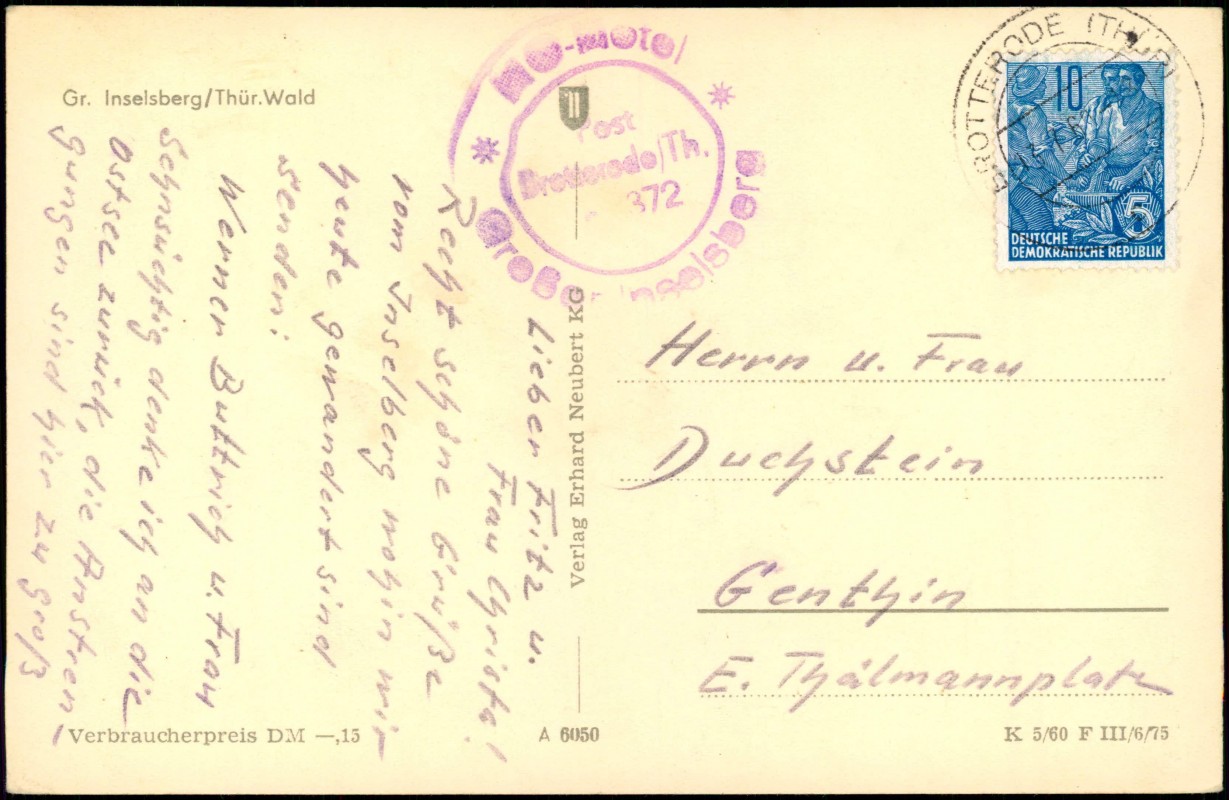 Gr. Inselsberg/Thür.Wald
HO-Hotel
Post
Brotterode/Th.
372
Großer Inselsberg
BROTTERODE (THÜR)
10
5
DEUTSCHE
DEMOKRATISCHE REPUBLIK
Lieber Fritz u.
Frau Christa!
Recht schöne Grüße
vom Inselberg wohin wir
heute gewandert sind
senden:
Werner Buttrich u. Frau
Sehnsüchtig denke ich an die
Ostsee zurück, die Anstren-
gungen sind hier zu groß
Verlag Erhard Neubert KG
Herrn u. Frau
Duchstein
Genthin
E. Thälmannplatz
Verbraucherpreis DM —,15
A 6050
K 5/60 F III/6/75